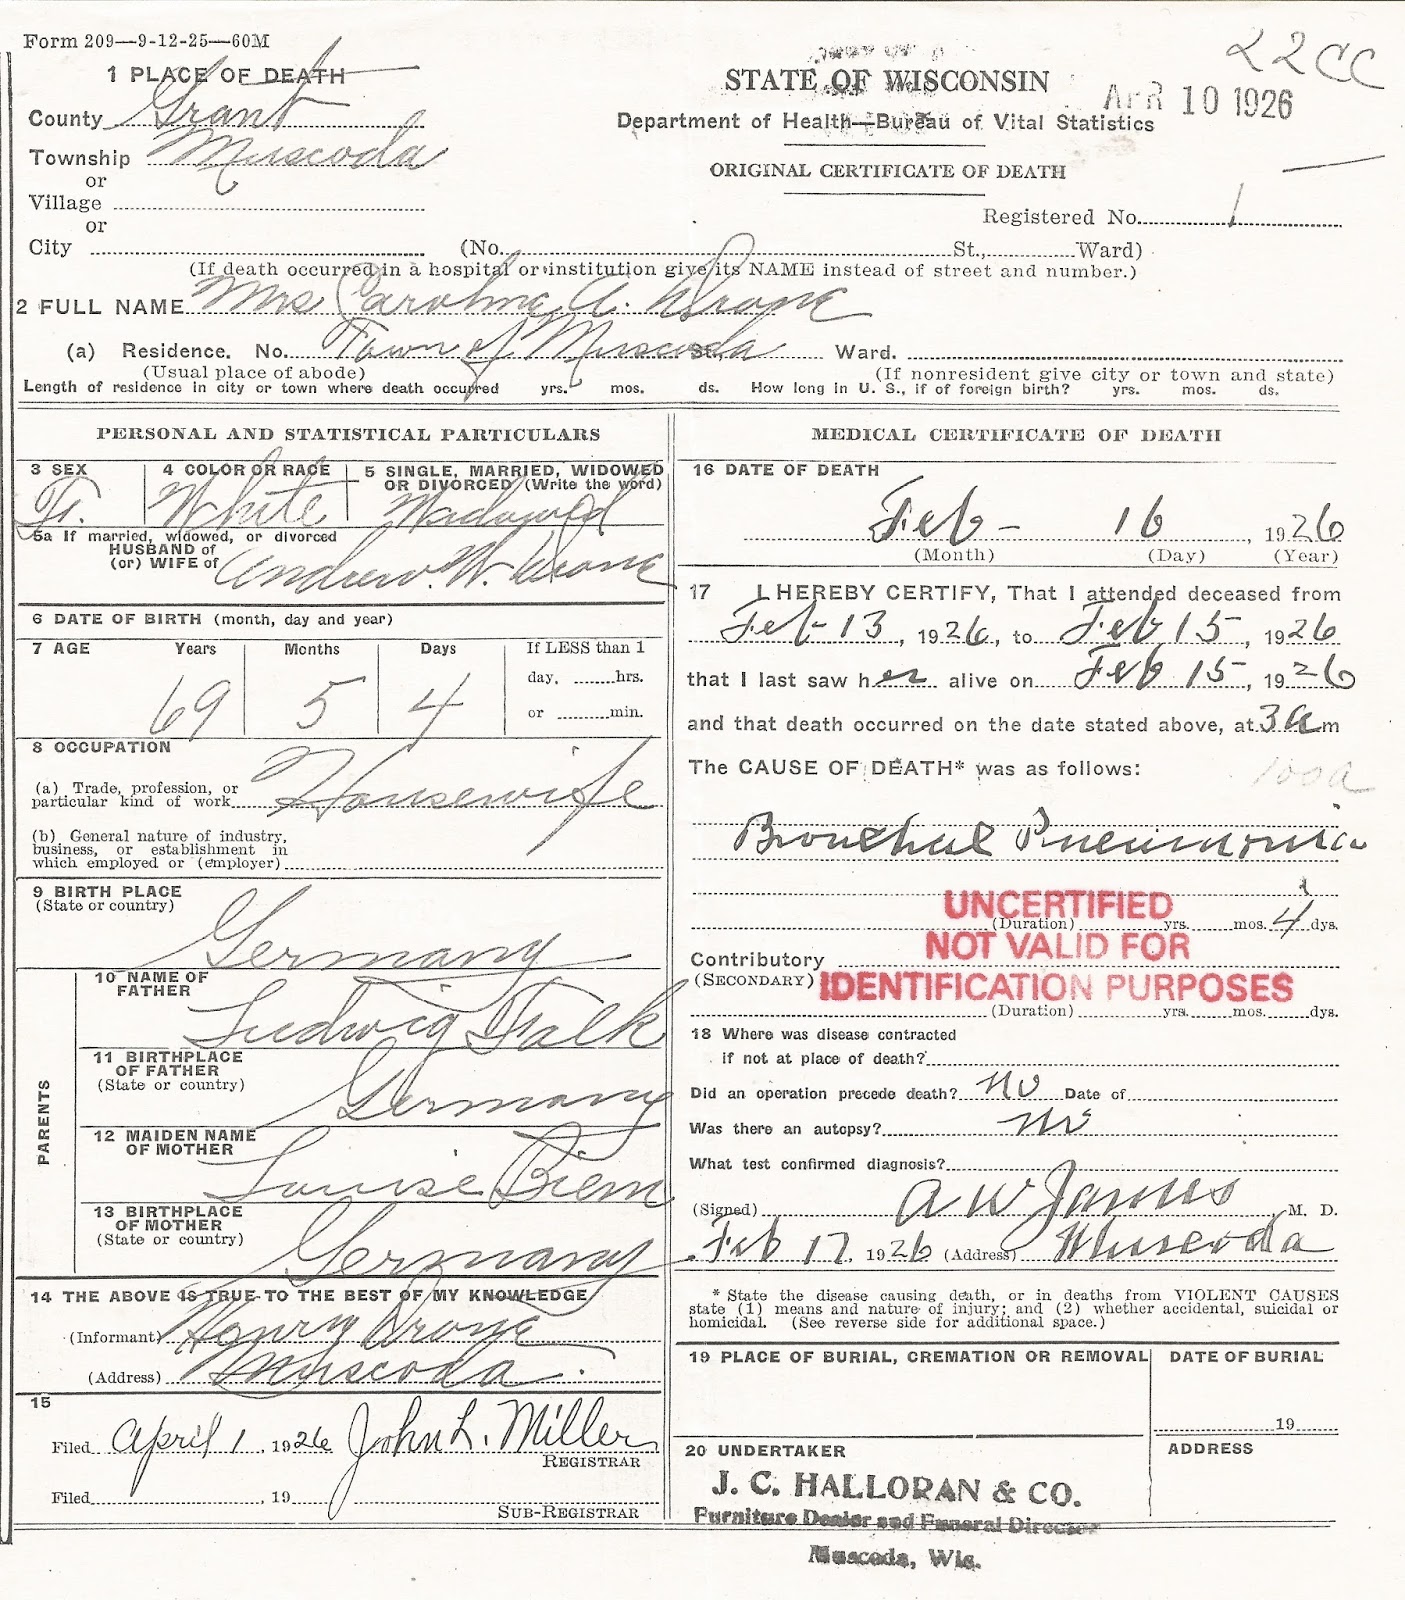 Form 209—9-12-25—60M
22 CC
1 PLACE OF DEATH
STATE OF WISCONSIN
APR 10 1926
County Grant
Department of Health—Bureau of Vital Statistics
Township Muscoda
or
ORIGINAL CERTIFICATE OF DEATH
Village
or
Registered No. 1
City (No. St., Ward)
(If death occurred in a hospital or institution give its NAME instead of street and number.)
2 FULL NAME Mrs Caroline A. Drone
(a) Residence. No. Town of Muscoda St. Ward.
(Usual place of abode) (If nonresident give city or town and state)
Length of residence in city or town where death occurred yrs. mos. ds. How long in U. S., if of foreign birth? yrs. mos. ds.
PERSONAL AND STATISTICAL PARTICULARS
3 SEX 4 COLOR OR RACE 5 SINGLE, MARRIED, WIDOWED
OR DIVORCED (Write the word)
F. White Widowed
5a If married, widowed, or divorced
HUSBAND of
(or) WIFE of Andrew. W. Drone
6 DATE OF BIRTH (month, day and year)
7 AGE Years Months Days If LESS than 1
day, hrs.
69 5 4
or min.
8 OCCUPATION
(a) Trade, profession, or
particular kind of work Housewife
(b) General nature of industry,
business, or establishment in
which employed or (employer)
9 BIRTH PLACE
(State or country)
Germany
PARENTS
10 NAME OF
FATHER
Ludwig Falk
11 BIRTHPLACE
OF FATHER
(State or country)
Germany
12 MAIDEN NAME
OF MOTHER
Louise Biem
13 BIRTHPLACE
OF MOTHER
(State or country)
Germany
14 THE ABOVE IS TRUE TO THE BEST OF MY KNOWLEDGE
(Informant) Henry Drone
(Address) Muscoda.
15
Filed April 1, 1926 John L. Miller
REGISTRAR
Filed , 19
SUB-REGISTRAR
MEDICAL CERTIFICATE OF DEATH
16 DATE OF DEATH
Feb - 16, 1926
(Month) (Day) (Year)
17 I HEREBY CERTIFY, That I attended deceased from
Feb 13, 1926, to Feb 15, 1926
that I last saw her alive on Feb 15, 1926
and that death occurred on the date stated above, at 3 a m
The CAUSE OF DEATH* was as follows:
100a
Bronchial Pneumonia
UNCERTIFIED
(Duration) yrs. mos. 4 dys.
NOT VALID FOR
Contributory
(SECONDARY)
IDENTIFICATION PURPOSES
(Duration) yrs. mos. dys.
18 Where was disease contracted
if not at place of death?
Did an operation precede death? no Date of
Was there an autopsy? no
What test confirmed diagnosis?
(Signed) A W James, M. D.
Feb 17, 1926 (Address) Muscoda
* State the disease causing death, or in deaths from VIOLENT CAUSES
state (1) means and nature of injury; and (2) whether accidental, suicidal or
homicidal. (See reverse side for additional space.)
19 PLACE OF BURIAL, CREMATION OR REMOVAL DATE OF BURIAL
19
20 UNDERTAKER ADDRESS
J. C. HALLORAN & CO.
Furniture Dealer and Funeral Director
Muscoda, Wis.